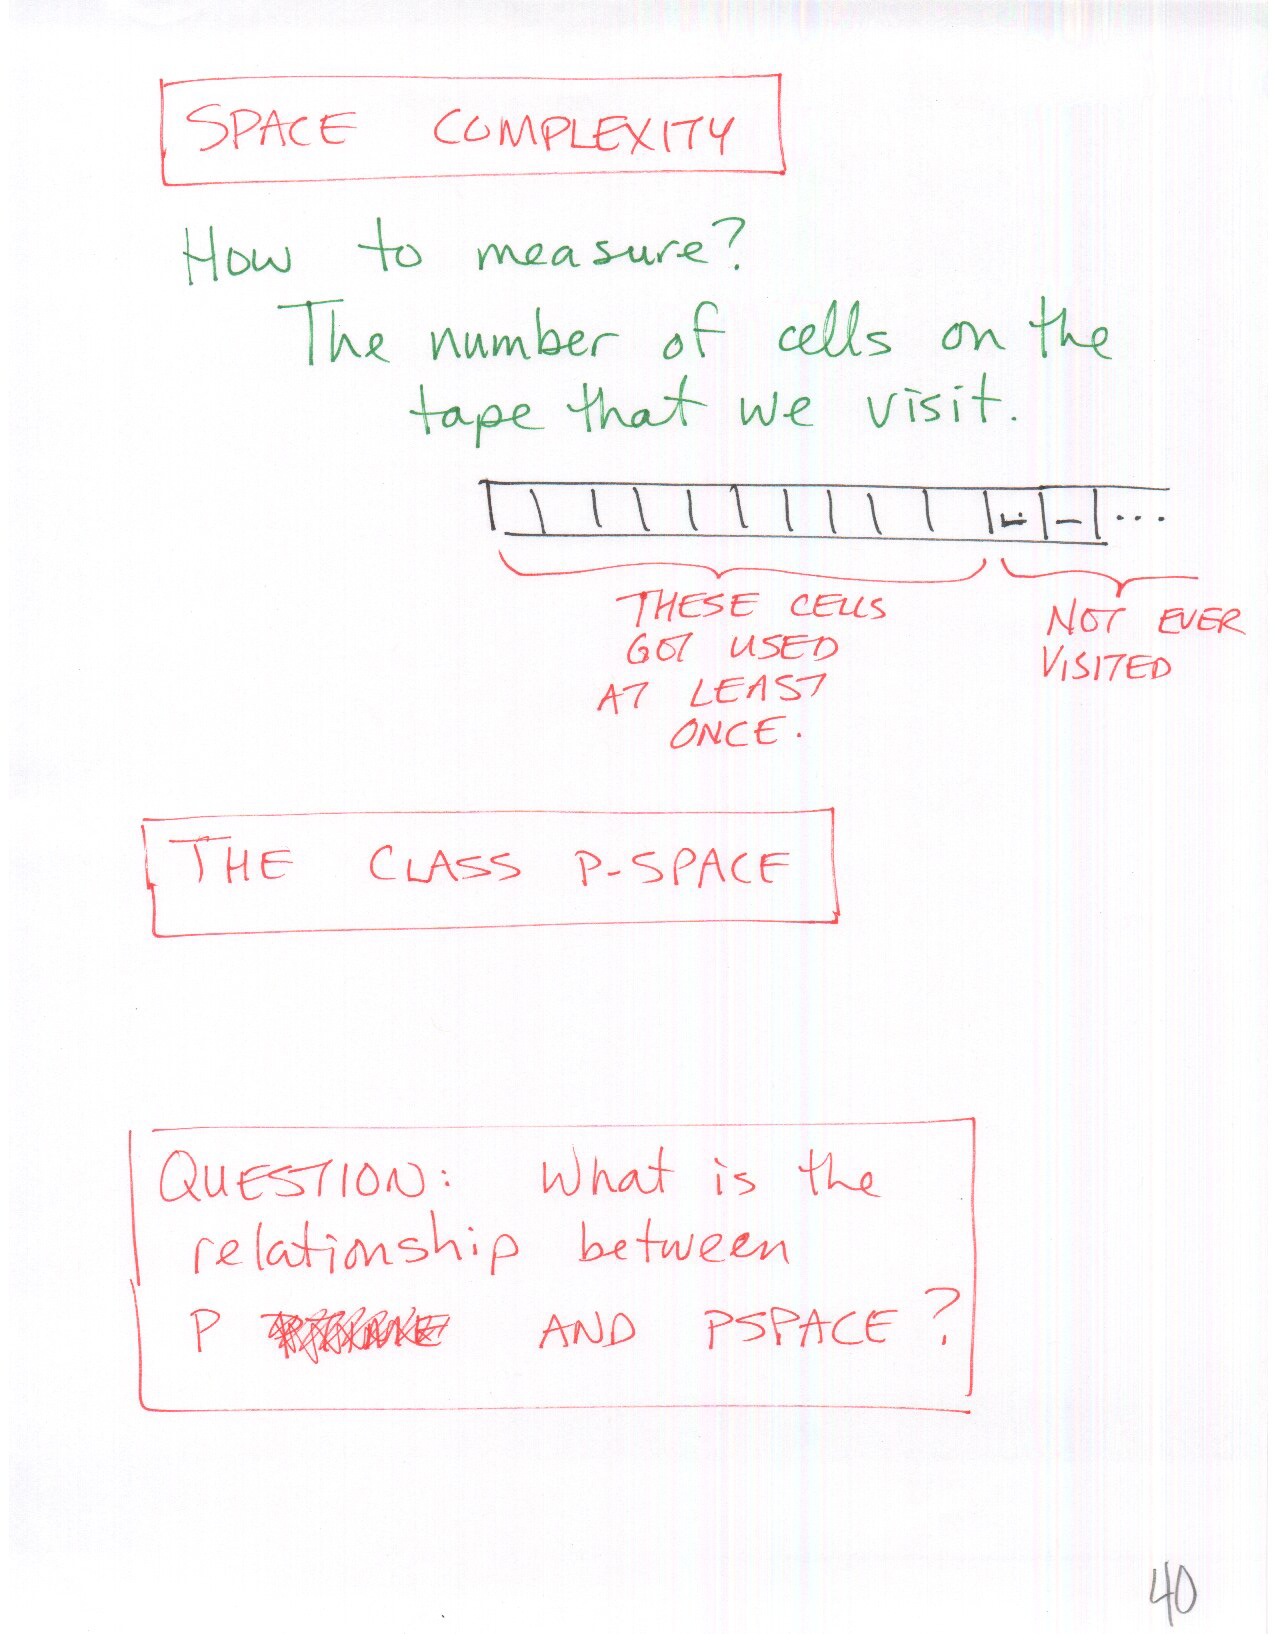 SPACE COMPLEXITY
How to measure?
The number of cells on the
tape that we visit.
...
THESE CELLS
GOT USED
AT LEAST
ONCE.
NOT EVER
VISITED
THE CLASS P-SPACE
QUESTION: What is the
relationship between
P AND PSPACE?
40